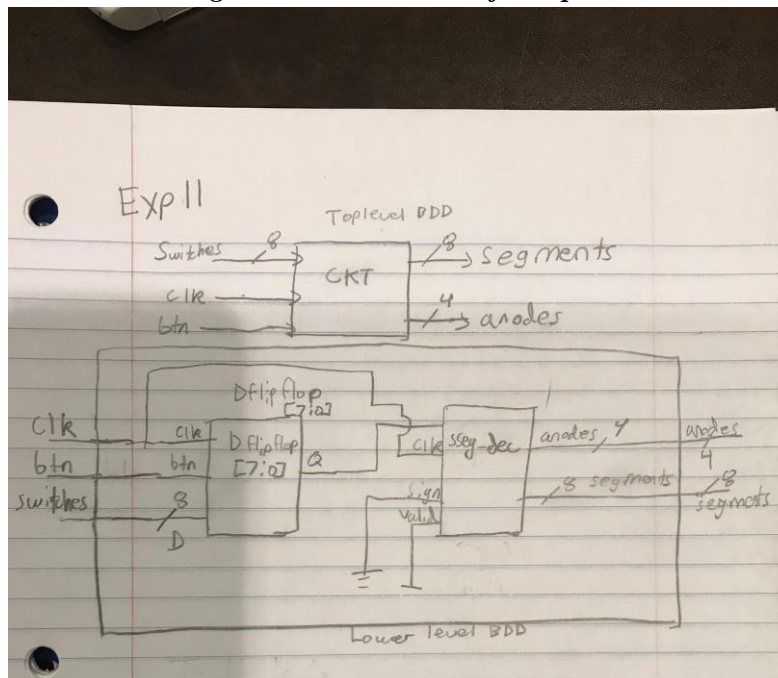 Exp 11
Toplevel BDD
Switches 8
clk
btn
CKT
8 segments
4 anodes
Dflipflop
[7:0]
clk
btn
switches
clk
btn
8
D
D flipflop
[7:0]
Q
clk
sseg-dec
sign
valid
anodes, 4
8 segments
anodes
4
8
segments
Lower level BDD